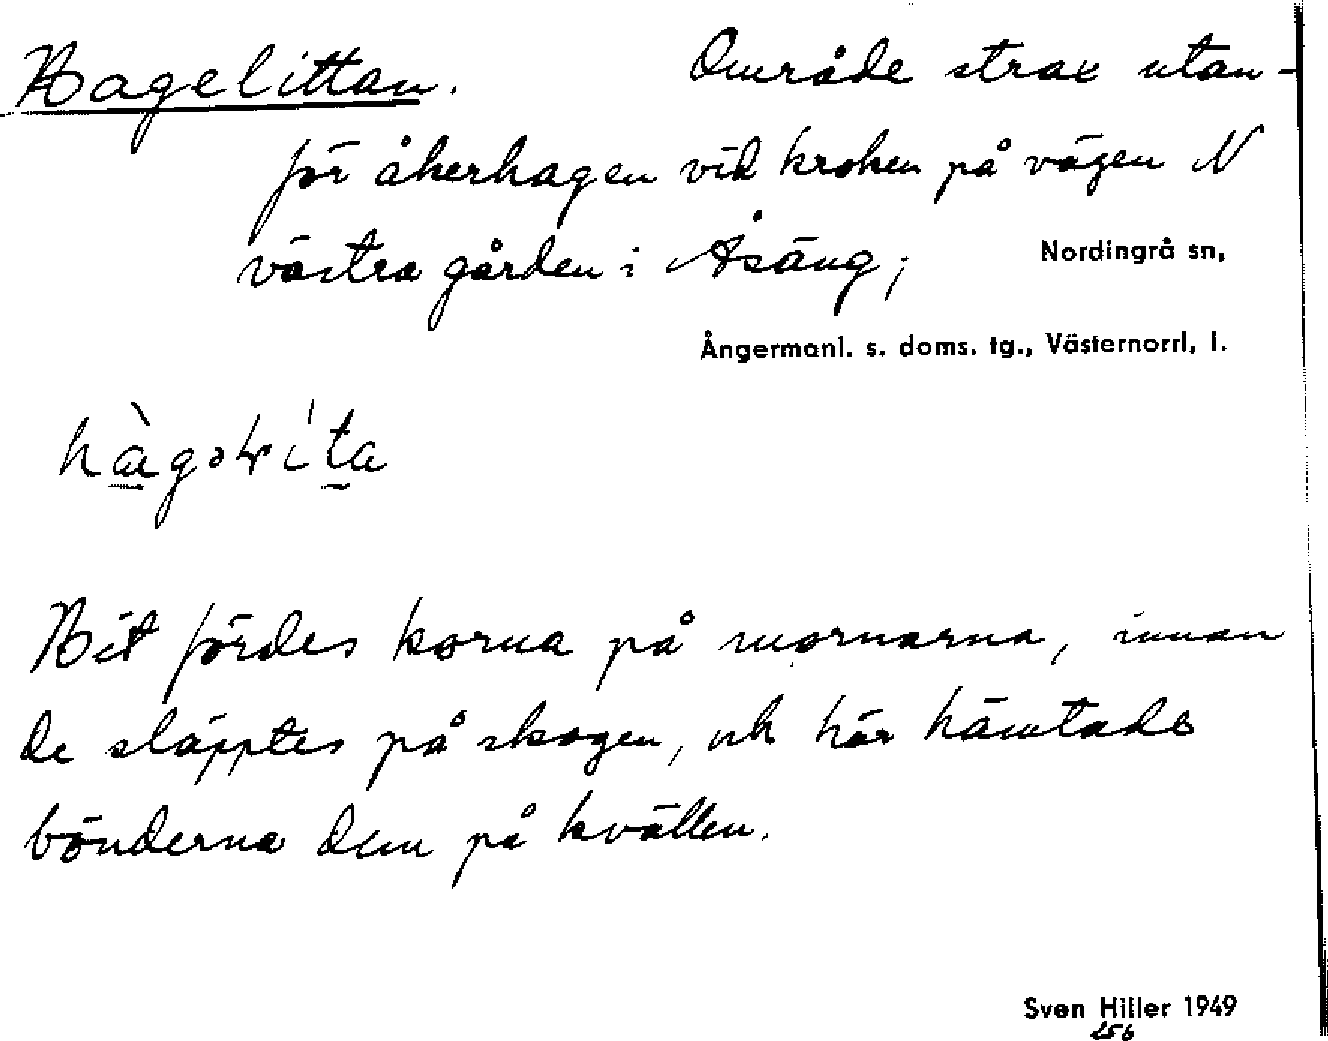 Hagelittan. Område strax utan-
för åkerhagen vid kroken på vägen N
västra gården i Åsäng; Nordingrå sn,
Ångermanl. s. doms. tg., Västernorrl, l.
Hit fördes korna på mornarna, innan
de släpptes på skogen, och här hämtade
bönderna dem på kvällen.
Sven Hiller 1949
256